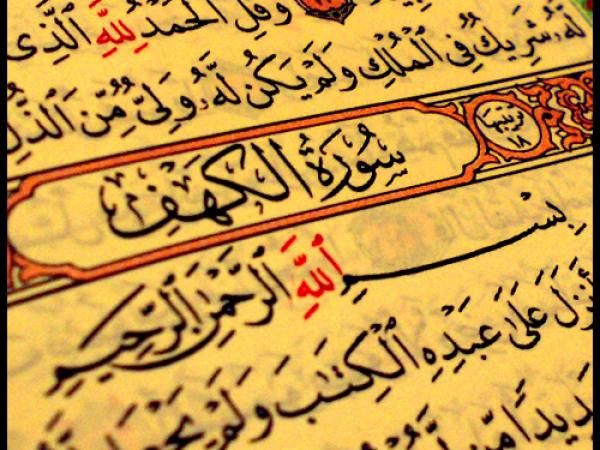 وَقُلِ ٱلْحَمْدُ لِلَّهِ ٱلَّذِى
لَّهُۥ شَرِيكٌ فِى ٱلْمُلْكِ وَلَمْ يَكُن لَّهُۥ وَلِىٌّ مِّنَ ٱلذُّلِّ
سُورَةُ الكَهْفِ
ترتيبها ١٨
بِسْمِ ٱللَّهِ ٱلرَّحْمَٰنِ ٱلرَّحِيمِ
أَنزَلَ عَلَىٰ عَبْدِهِ ٱلْكِتَٰبَ وَلَمْ يَجْعَل
مِّنْ